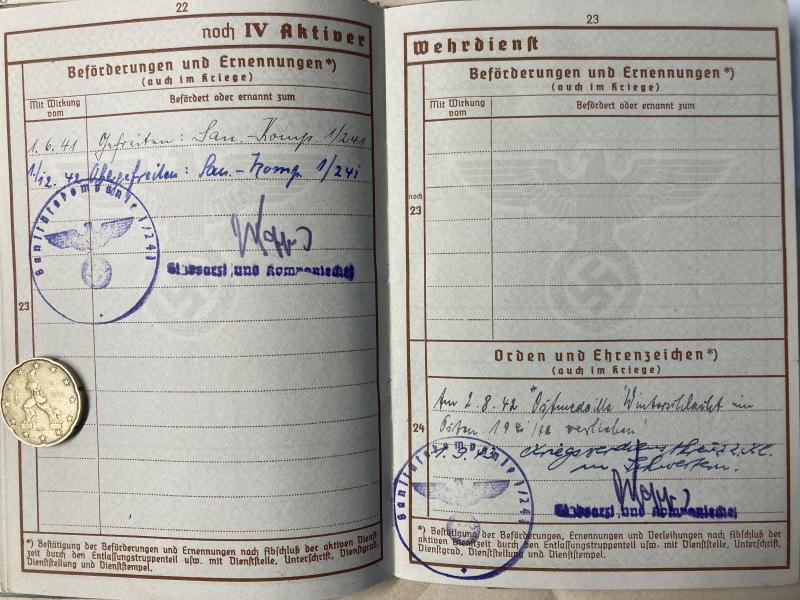 22
noch IV Aktiver
Beförderungen und Ernennungen*)
(auch im Kriege)
Mit Wirkung vom
Befördert oder ernannt zum
1.6.41 Gefreiten: San.-Komp. 1/241
1/12.42 Obergefreiten: San.-Komp. 1/241
Sanitätskompanie 1/241
Stabsarzt und Kompaniechef
23
*) Bestätigung der Beförderungen und Ernennungen nach Abschluß der aktiven Dienst-
zeit durch den Entlassungstruppenteil usw. mit Dienststelle, Unterschrift, Dienstgrad,
Dienststellung und Dienststempel.
23
Wehrdienst
Beförderungen und Ernennungen*)
(auch im Kriege)
Mit Wirkung vom
Befördert oder ernannt zum
noch
23
Orden und Ehrenzeichen*)
(auch im Kriege)
Am 2.8.42 "Ostmedaille" Winterschlacht im
Osten 1941/42 verliehen
24
1.9.43 Kriegsverdienstkreuz 2. Kl.
m. Schwertern.
Sanitätskompanie 1/241
Stabsarzt und Kompaniechef
*) Bestätigung der Beförderungen und Ernennungen und Verleihungen nach Abschluß der
aktiven Dienstzeit durch den Entlassungstruppenteil usw. mit Dienststelle, Unterschrift,
Dienstgrad, Dienststellung und Dienststempel.